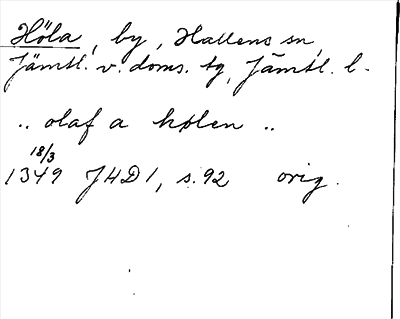 Höla, by, Hallens sn,
Jämtl. v. doms. tg, Jämtl. l.
.. olaf a hølen ..
18/3
1349 JHD 1, s. 92 orig.